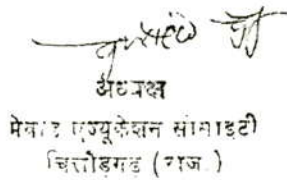 अध्यक्ष
मेवाड एज्यूकेशन सोसाइटी
चित्तोड़गढ़ (राज.)